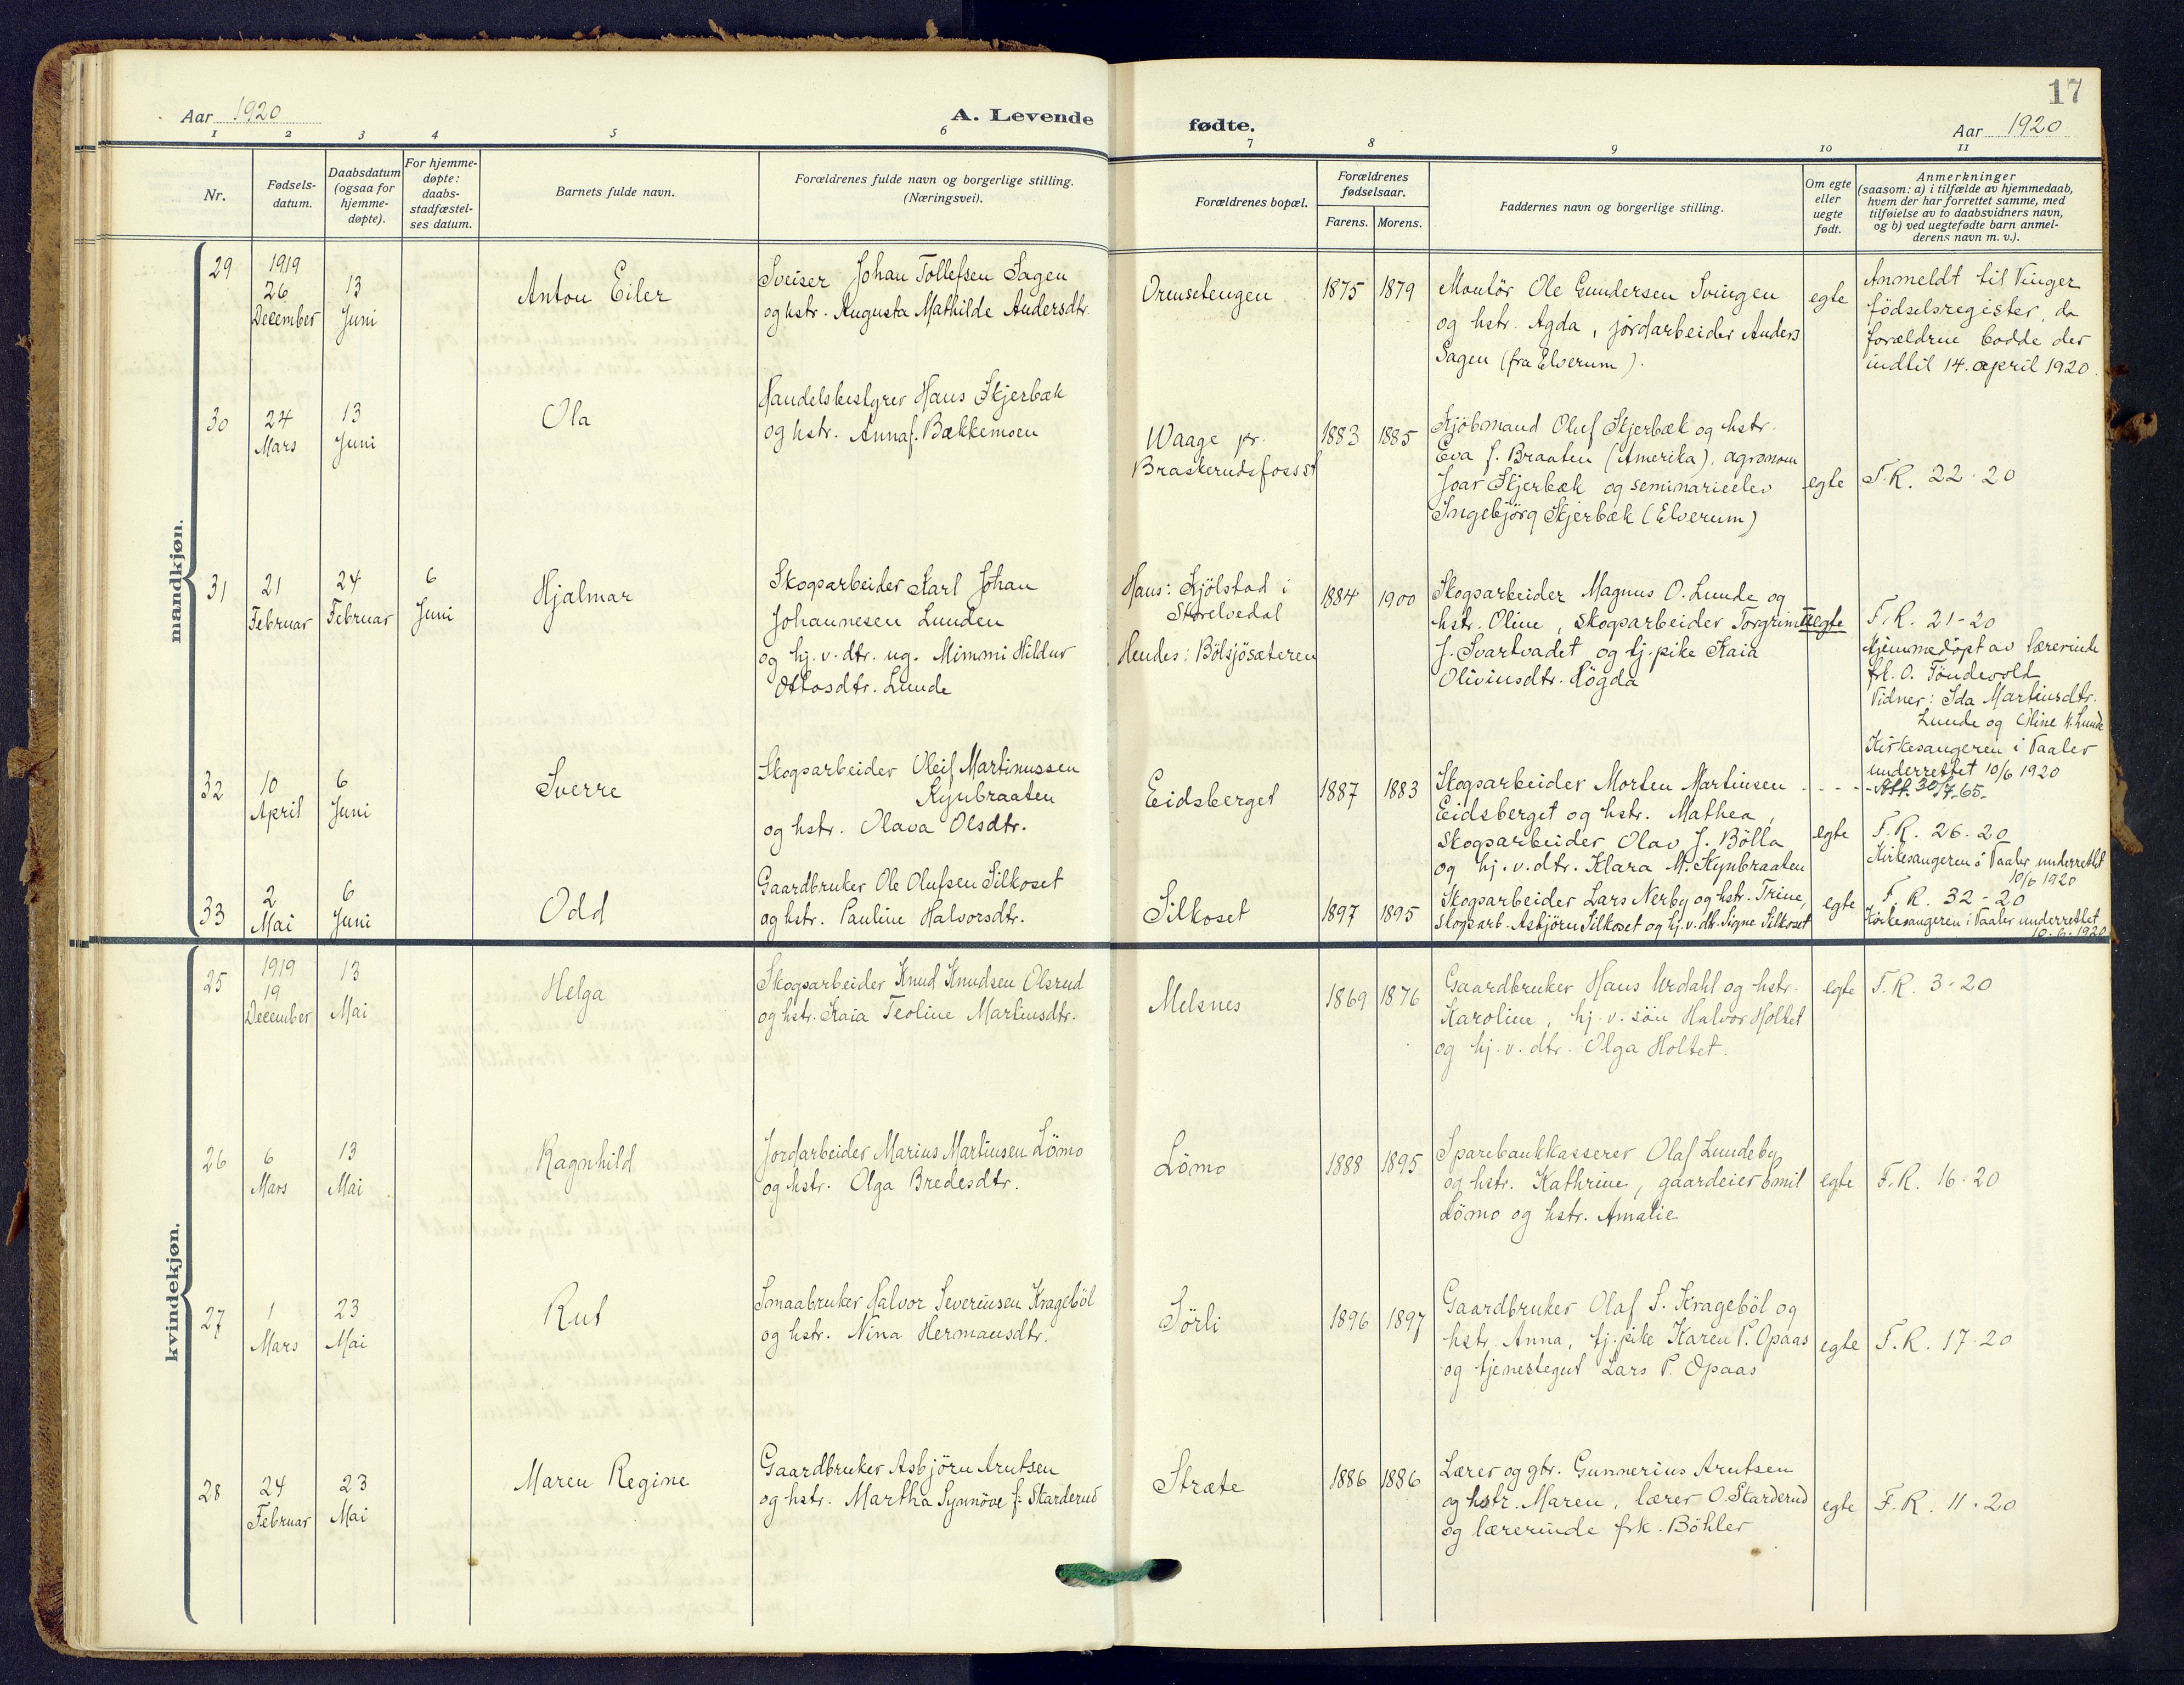 17
Aar 1920
A. Levende
fødte.
Aar 1920
1 2 3 4 5 6 7 8 9 10 11
Nr.
Fødsels-
datum.
Daabsdatum
(ogsaa for
hjemme-
døpte).
For hjemme-
døpte:
daabs-
stadfæstel-
ses datum.
Barnets fulde navn.
Forældrenes fulde navn og borgerlige stilling.
(Næringsvei).
Forældrenes bopæl.
Forældrenes
fødselsaar.
Farens. Morens.
Faddernes navn og borgerlige stilling.
Om egte
eller
uegte
født.
Anmerkninger
(saasom: a) i tilfælde av hjemmedaab,
hvem der har forrettet samme, med
tilføielse av to daabsvidners navn,
og b) ved uegtefødte barn anmel-
derens navn m. v.).
mandkjøn.
29
1919
26
December
13
Juni
Anton Eiler
Sveiser Johan Tollefsen Sagen
og hstr. Augusta Mathilde Andersdtr.
Ormsetengen
1875
1879
Montör Ole Gundersen Svingen
og hstr. Agda, jordarbeider Anders
Sagen (fra Elverum).
egte
Anmeldt til Vinger
fødselsregister, da
forældrene bodde der
indtil 14. april 1920.
30
24
Mars
13
Juni
Ola
Handelsbestyrer Hans Skjerbæk
og hstr. Anna f. Bækkemoen
Waage pr.
Braskerudsfoss st
1883
1885
Kjöbmand Oluf Skjerbæk og hstr.
Eva f. Braaten (Amerika), agronom
Joar Skjerbæk og seminarieelev
Ingebjörg Skjerbæk (Elverum)
egte
F.R. 22-20
31
21
Februar
24
Februar
6
Juni
Hjalmar
Skogsarbeider Karl Johan
Johannesen Lunden
og hj. v. dtr. ug. Mimmi Hildur
Ottosdtr. Lunde
Hans: Kjölstad i
Storelvedal
Hendes: Bölsjösæteren
1884
1900
Skogsarbeider Magnus O. Lunde og
hstr. Oline, skogsarbeider Torgrim
J. Svartvadet og tj. pike Kaia
Oliviusdtr. Rögda
Uegte
F.R. 21-20
Hjemmedöpt av lærerinde
frk. O. Töndevold
Vidner: Ida Martinsdtr.
Lunde og Oline M. Lunde
Kirkesangeren i Vaaler
underrettet 10/6 1920
Att. 30/7-65.
32
10
April
6
Juni
Sverre
Skogsarbeider Oleif Martinussen
Kynbraaten
og hstr. Olava Olsdtr.
Eidsberget
1887
1883
Skogsarbeider Morten Martinsen
Eidsberget og hstr. Mathea,
skogsarbeider Olav J. Bölla
og hj. v. dtr. Klara M. Kynbraaten
egte
F.R. 26-20
Kirkesangeren i Vaaler underrettet
10/6 1920
33
2
Mai
6
Juni
Odd
Gaardbruker Ole Olufsen Silkoset
og hstr. Pauline Halvorsdtr.
Silkoset
1897
1895
Skogsarbeider Lars Nerby og hstr. Trine,
skogsarb. Asbjörn Silkoset og hj. v. dtr. Signe Silkoset
egte
F.R. 32-20
Kirkesangeren i Vaaler underrettet
10-6-1920
kvindekjøn.
25
1919
19
December
13
Mai
Helga
Skogsarbeider Knud Knudsen Olsrud
og hstr. Kaia Teoline Martinsdtr.
Melsnes
1869
1876
Gaardbruker Hans Urdahl og hstr.
Karoline, hj. v. sön Halvor Holtet
og hj. v. dtr. Olga Holtet.
egte
F.R. 3-20
26
6
Mars
13
Mai
Ragnhild
Jordarbeider Marius Martinsen Lömo
og hstr. Olga Bredesdtr.
Lömo
1888
1895
Sparebankkasserer Olaf Lundeby
og hstr. Kathrine, gaardeier Emil
Lömo og hstr. Amalie
egte
F.R. 16-20
27
1
Mars
23
Mai
Rut
Smaabruker Halvor Severinsen Krageböl
og hstr. Nina Hermansdtr.
Sörli
1896
1897
Gaardbruker Olaf S. Krageböl og
hstr. Anna, tj. pike Karen P. Opaas
og tjenestegut Lars P. Opaas
egte
F.R. 17-20
28
24
Februar
23
Mai
Maren Regine
Gaardbruker Asbjörn Arntsen
og hstr. Martha Synnöve f. Skarderud
Stræte
1886
1886
Lærer og gbr. Gunnerius Arntsen
og hstr. Maren, lærer O. Skarderud
og lærerinde frk. Böhler
egte
F.R. 11-20